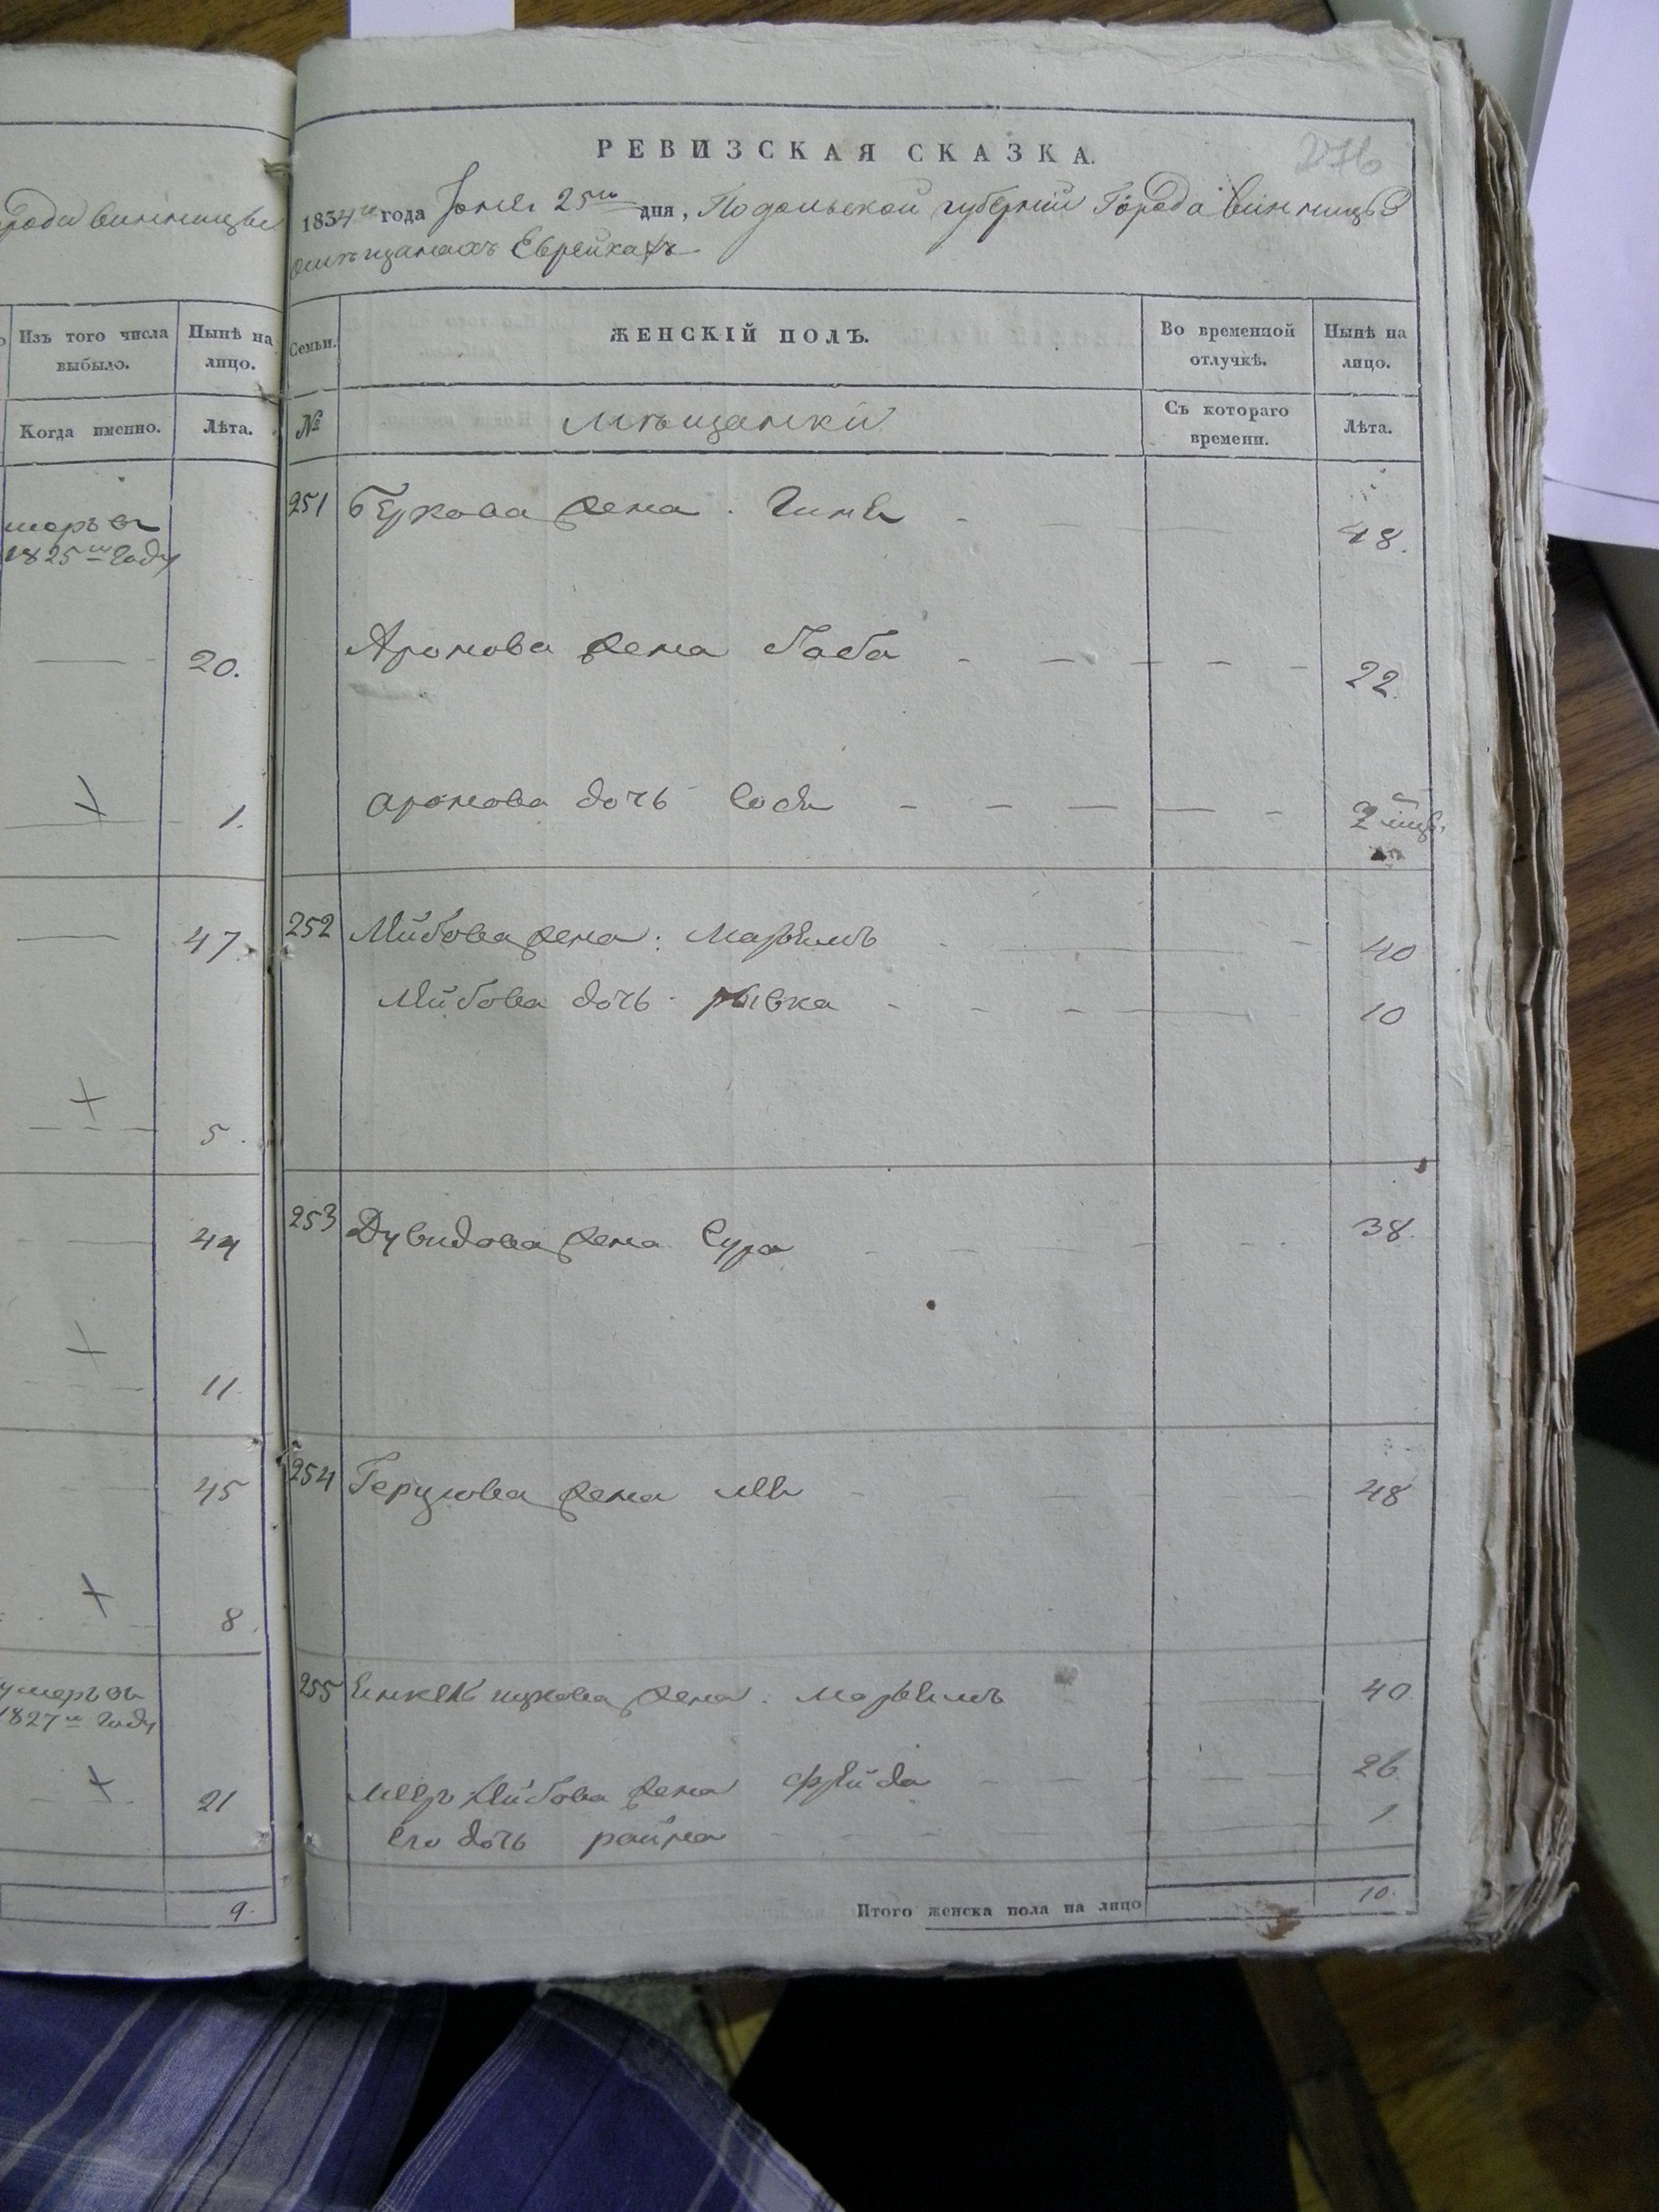 рода Винницы
Изъ того числа выбыло.
Нынѣ на лицо.
Когда именно.
Лѣта.
1825го Году
20.
1.
47.
5.
44
11.
45
8.
умеръ въ
1827м Году
21
9.
276
РЕВИЗСКАЯ СКАЗКА.
1834го года Іюня 25го дня, Подольской губерніи Города Винницы
о мѣщанахъ Еврейкахъ
Семьи.
ЖЕНСКІЙ ПОЛЪ.
Во временной отлучкѣ.
Нынѣ на лицо.
№
Мѣщанки
Съ котораго времени.
Лѣта.
251 Беркова жена Гиня 48.
Аронова жена Баба 22.
Аронова дочь Бося 2
252 Лейбова жена Марьямъ 40
Лейбова дочь Рывка 10
253 Дувидова жена Сура 38.
254 Герцкова жена Лея 48
255 жена Марьямъ 40
Лейбова жена Фрейда 26
Его дочь 1
Итого женска пола на лицо 10.